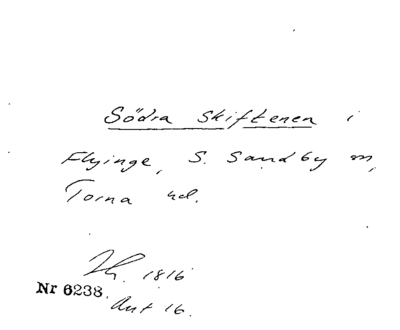 Södra skiftenen i
Flyinge, S. Sandby m,
Torna hd.
Th. 1816
Nr 6238.
Ant 16.